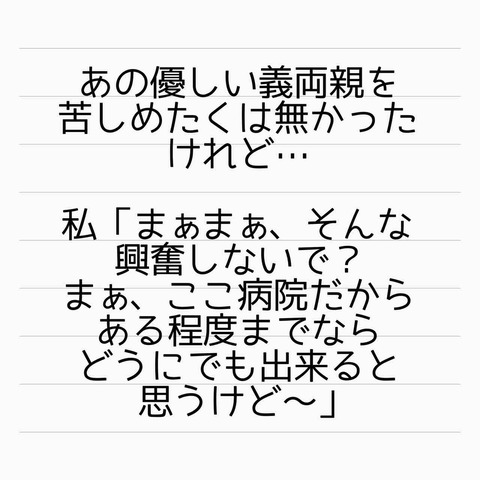 あの優しい義両親を
苦しめたくは無かった
けれど…
私「まぁまぁ、そんな
興奮しないで？
まぁ、ここ病院だから
ある程度までなら
どうにでも出来ると
思うけど〜」